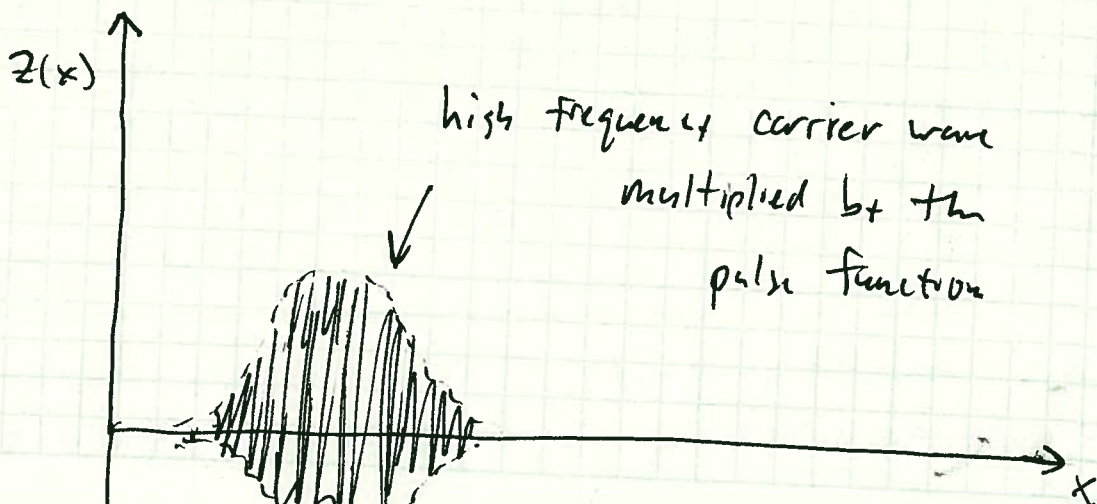 Z(x)
high frequency carrier wave
multiplied by the
pulse function
x